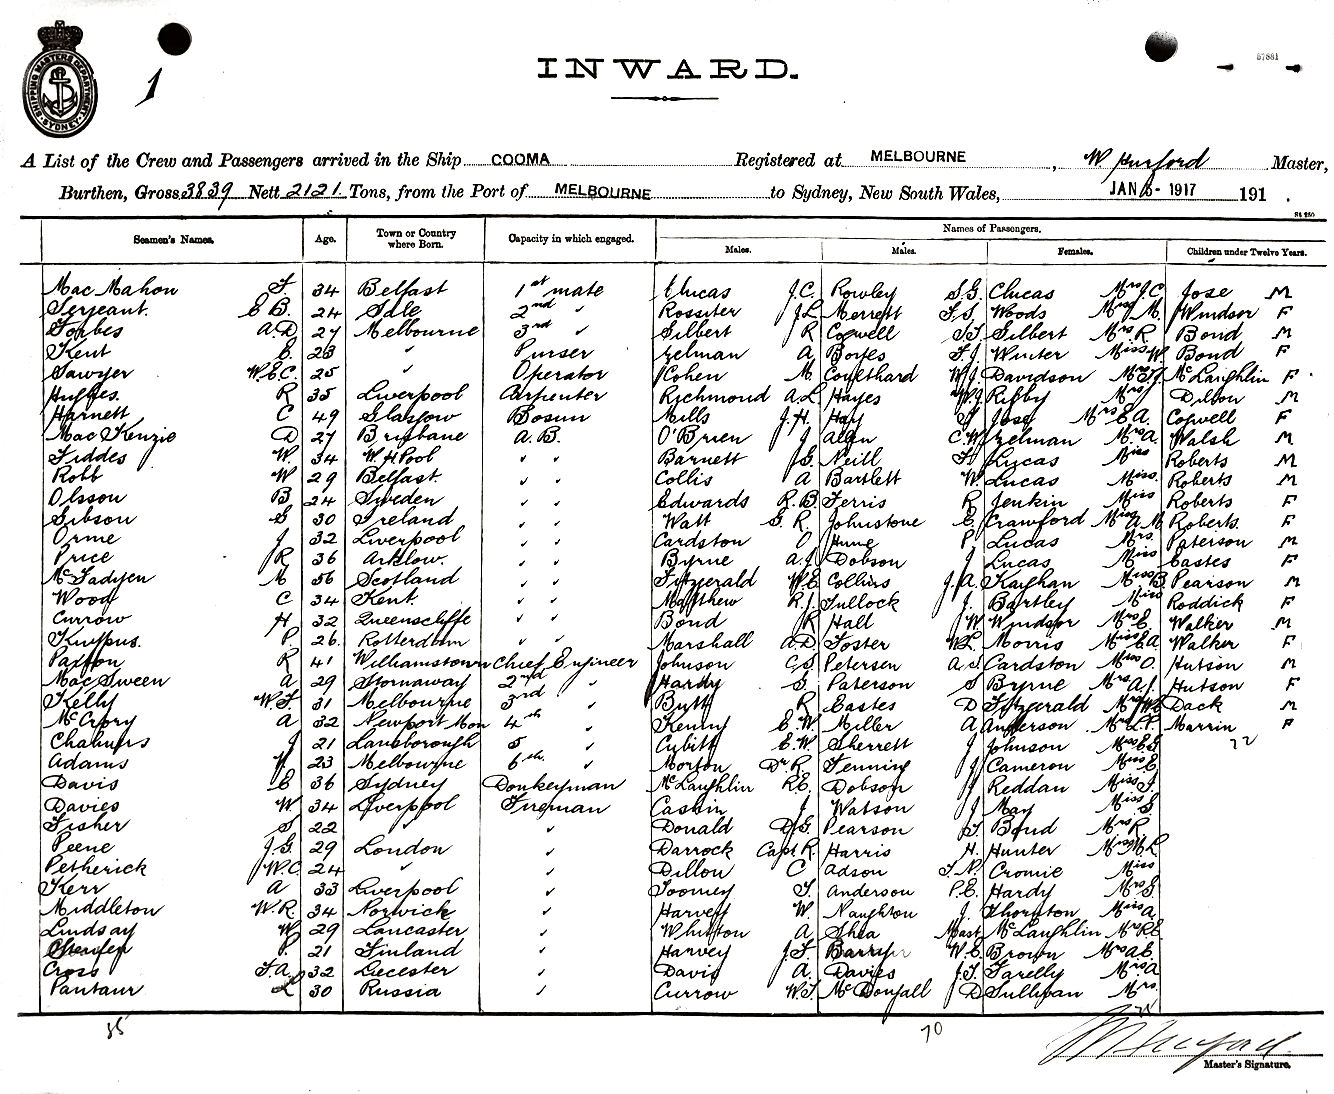 SHIPPING MASTERS DEPARTMENT SYDNEY
1
57881
INWARD.
A List of the Crew and Passengers arrived in the Ship COOMA Registered at MELBOURNE, W Hurford Master,
Burthen, Gross 3839 Nett 2121. Tons, from the Port of MELBOURNE to Sydney, New South Wales, JAN 5 - 1917 191 .
Seamen's Names. Age. Town or Country where Born. Capacity in which engaged. Names of Passengers.
Males. Males. Females. Children under Twelve Years.
Mac Mahon F. 34 Belfast 1st mate Clucas J.C. Rowley S.G. Clucas Mrs J.C. Jose M
Serjeant. E B. 24 Idle 2nd " Rossiter J.L. Merrett F.S. Woods M. Windsor F
Forbes A.D. 27 Melbourne 3rd " Silbert R Cogwell Silbert Mrs R. Bond M
Kent E. 28 " Purser Zelman A Boyes F.J. Winter Miss W. Bond F
Sawyer W.E.C. 25 " Operator Cohen M. Coulthard W.J. Davidson McLaughlin F
Hughes. R 35 Liverpool Carpenter Richmond A.L. Hayes W.J. Rigby Dillon M
Harnett C 49 Glasgow Bosun Mills J.H. Hay Jose Mrs E A. Cogwell F
Mac Kenzie D 27 Brisbane A.B. O'Brien J Allen C.W. Zelman Mrs A. Walsh M
Fiddes W. 34 W H Pool " " Barnett J.G. Neill Lucas Miss Roberts M
Robb W 29 Belfast. " " Collis A Bartlett W. Lucas Miss. Roberts M
Olsson B 24 Sweden " " Edwards R.B. Ferris R Jenkin Miss Roberts F
Gibson S 30 Ireland " " Watt G.R. Johnstone E. Crawford Roberts. F
Orme J. 32 Liverpool " " Cardston O Hume P. Lucas Mrs. Paterson M
Price R 36 Arklow. " " Byrne A.J. Dobson J Lucas Miss Eastes F
McFadyen M 56 Scotland " " Fitzgerald W.E. Collins J.A. Kaighan Miss B. Pearson M
Wood C 34 Kent. " " Matthew R.J. Tullock J. Bartley Miss Roddick F
Currow H 32 Queenscliffe " " Bond R Hall J.W. Windsor Mrs E. Walker M
Knuppus. P. 26. Rotterdam " " Marshall A.D. Foster W.L. Morris Miss E A. Walker F
Paxton R 41 Williamstown Chief Engineer Johnson C.S. Petersen A S. Cardston Miss O. Hutson M
MacSween A 29 Stornaway 2nd " Hardy S Paterson S Byrne Mrs A.J. Hutson F
Kelly W.F. 31 Melbourne 3rd " Butt R Eastes D Fitzgerald Mrs W.E. Dack M
McCrory A 32 Newport Mon 4th " Kenny E.W. Miller A Anderson Marrin F
Chalmers J 21 Lansborough 5 " Cubitt E.W. Sherrett J Johnson 22
Adams H 23 Melbourne 6th. " Morton Dr R. Fenning J Cameron Miss E
Davis E 36 Sydney Donkeyman McLaughlin R.E. Dobson J Reddan Miss
Davies W. 34 Liverpool Fireman Cashin J Watson J May Miss
Fisher S 22 " " Donald D.G. Pearson F. Bond Mrs R
Peene J.G. 29 London " Darrock Capt. R. Harris H. Hunter
Petherick W.C. 24 " " Dillon C Adson F.N. Cromie Miss
Kerr A 33 Liverpool " Toomey T. Anderson P.E. Hardy Mrs S
Middleton W.R. 34 Norwick " Harvey W. Naughton J. Thornton Miss A.
Lindsay W 29 Lancaster " Whitton A Shea Mast. McLaughlin Mrs R.E.
P. 21 Finland " Harvey J.F. W.E. Brown Mrs A.E.
Cross F.A. 32 Leicester " Davis A. Davies J.F. Farelly Mrs A
Pantaur L 30 Russia " Currow W.F. McDougall D Sullivan Mrs.
35 70
Master's Signature.